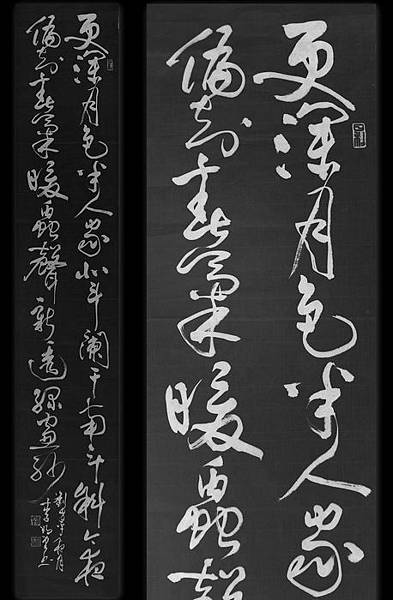 更深月色半人家北斗闌干南斗斜今夜
偏知春氣暖蟲聲新透綠窗紗
劉方平夜月
更深月色半人家
偏知春氣暖蟲聲